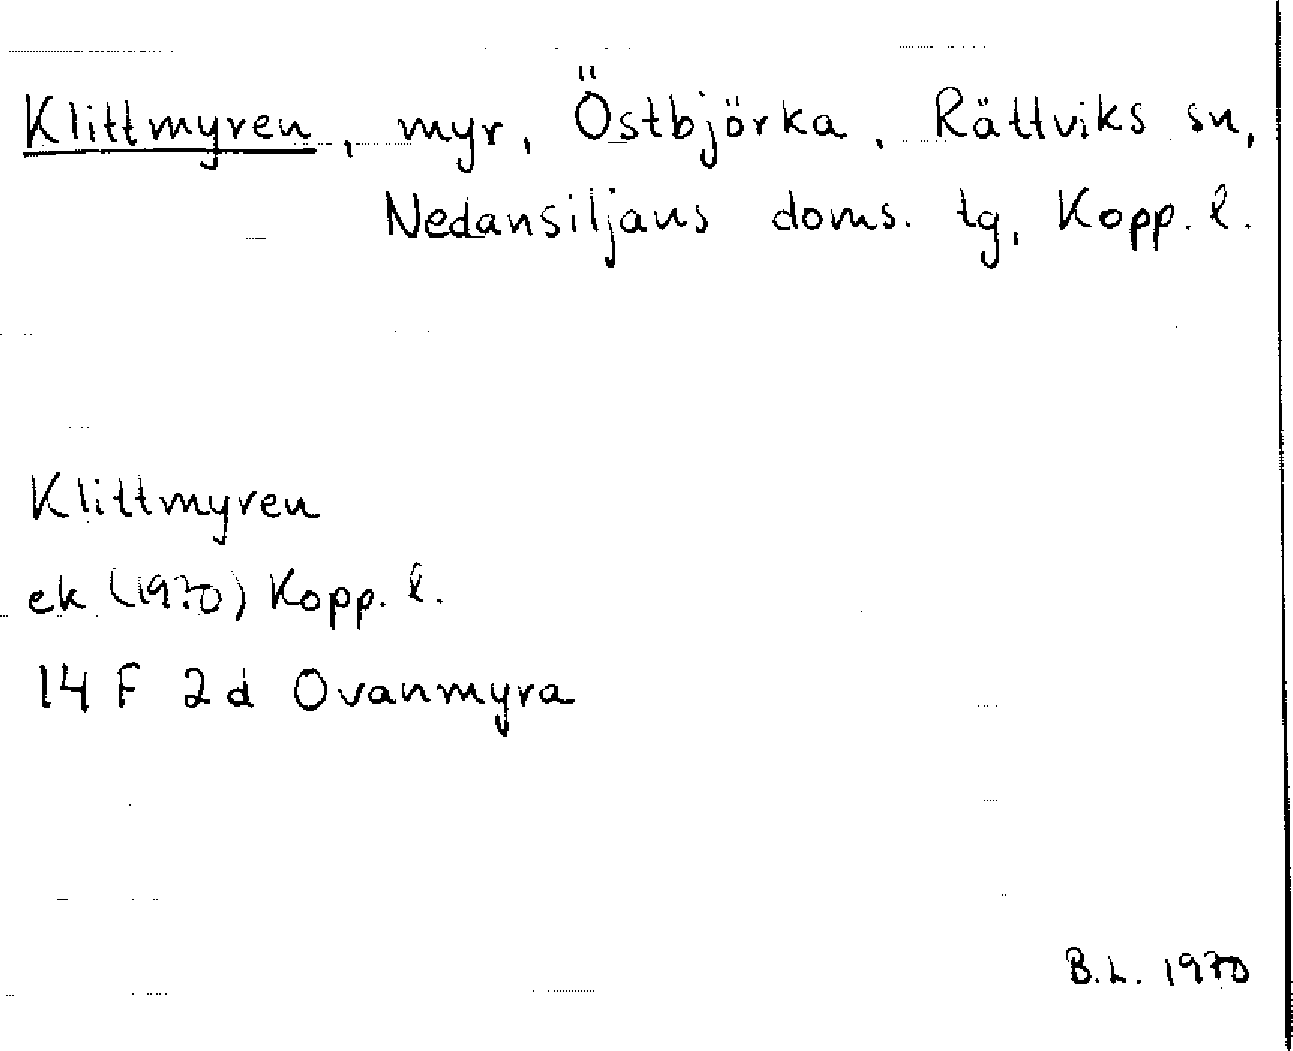 Klittmyren, myr, Östbjörka, Rättviks sn,
Nedansiljans doms. tg, Kopp. l.
Klittmyren
ek (1970) Kopp. l.
14 F 2d Ovanmyra
B.L. 1970